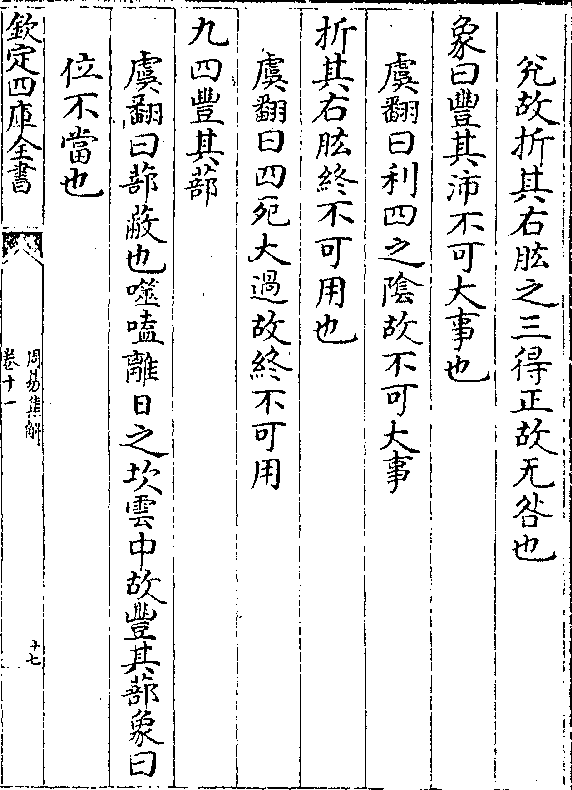 兊故折其右肱之三得正故无咎也
象曰豐其沛不可大事也
虞翻曰利四之陰故不可大事
折其右肱終不可用也
虞翻曰四死大過故終不可用
九四豐其蔀
虞翻曰蔀蔽也噬嗑離日之坎雲中故豐其蔀象曰
位不當也
欽定四庫全書
周易集解
卷十一
十七